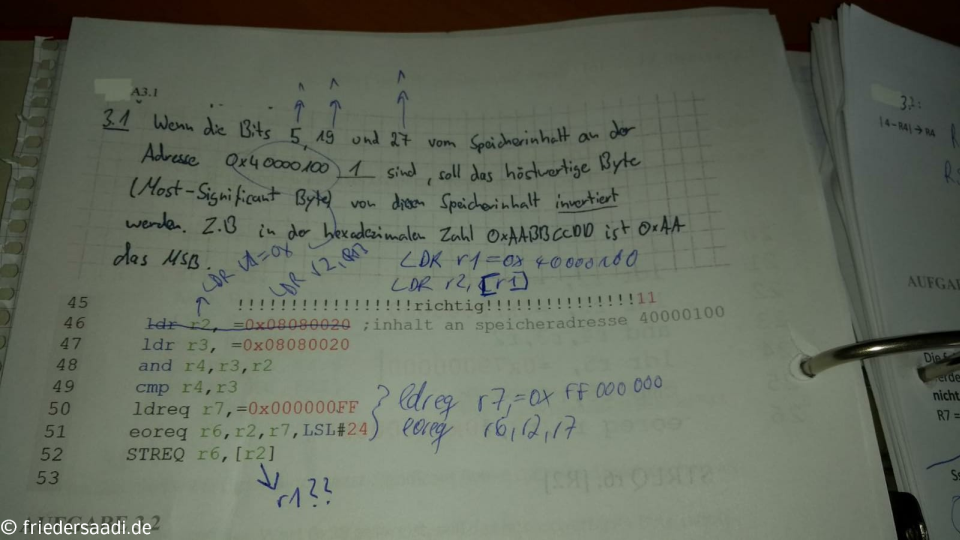 A3.1
3.1 Wenn die Bits 5, 19 und 27 vom Speicherinhalt an der
Adresse 0x40000100 1 sind, soll das höstwertige Byte
(Most-Significant Byte) von diesen Speicherinhalt invertiert
werden. Z.B in der hexadezimalen Zahl 0xAABBCCDD ist 0xAA
das MSB.
LDR r1=0x40000100
LDR r2, [r1]
45 !!!!!!!!!!!!!!!!!!richtig!!!!!!!!!!!!!!!11
46 ldr r2, =0x08080020 ;inhalt an speicheradresse 40000100
47 ldr r3, =0x08080020
48 and r4,r3,r2
49 cmp r4,r3
50 ldreq r7,=0x000000FF
ldreq r7,=0x FF 000 000
51 eoreq r6,r2,r7,LSL#24
eoreq r6,r2,r7
52 STREQ r6,[r2]
53
r1??
3.2:
|4-R4|→R4
AUFGA
nicht
R7 =
AUFGABE 3.2
© friedersaadi.de